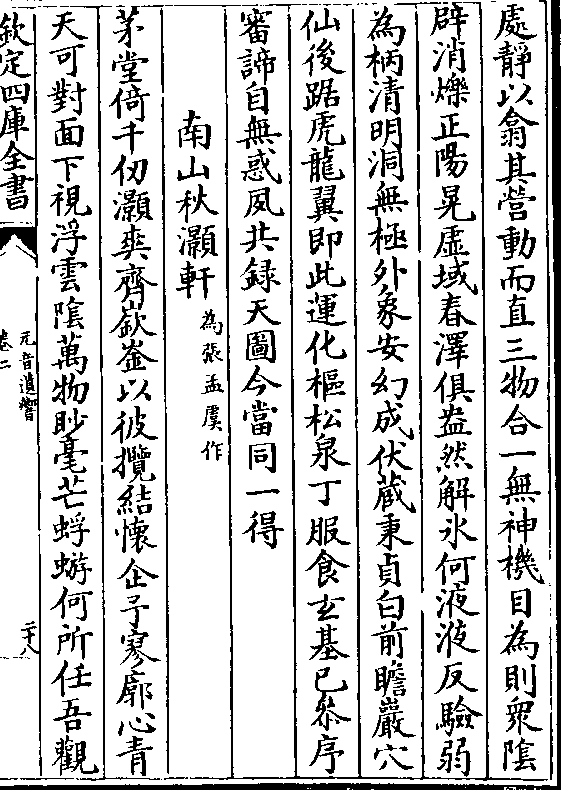 處靜以翕其營動而直三物合一無神機目為則衆陰
辟消爍正陽晃虛域春澤俱盎然解氷何液液反驗弱
為柄清明洞無極外象安幻成伏藏秉貞白前瞻巖穴
仙後踞虎龍翼即此運化樞松泉丁服食玄基已叅序
審諦自無惑夙共録天圖今當同一得
南山秋灝軒為張孟虞作
茅堂倚千仞灝爽齊嶔崟以彼攬結懷企予寥廓心青
天可對面下視浮雲陰萬物眇毫芒蜉蝣何所任吾觀
欽定四庫全書
元音遺響
卷二
二十八